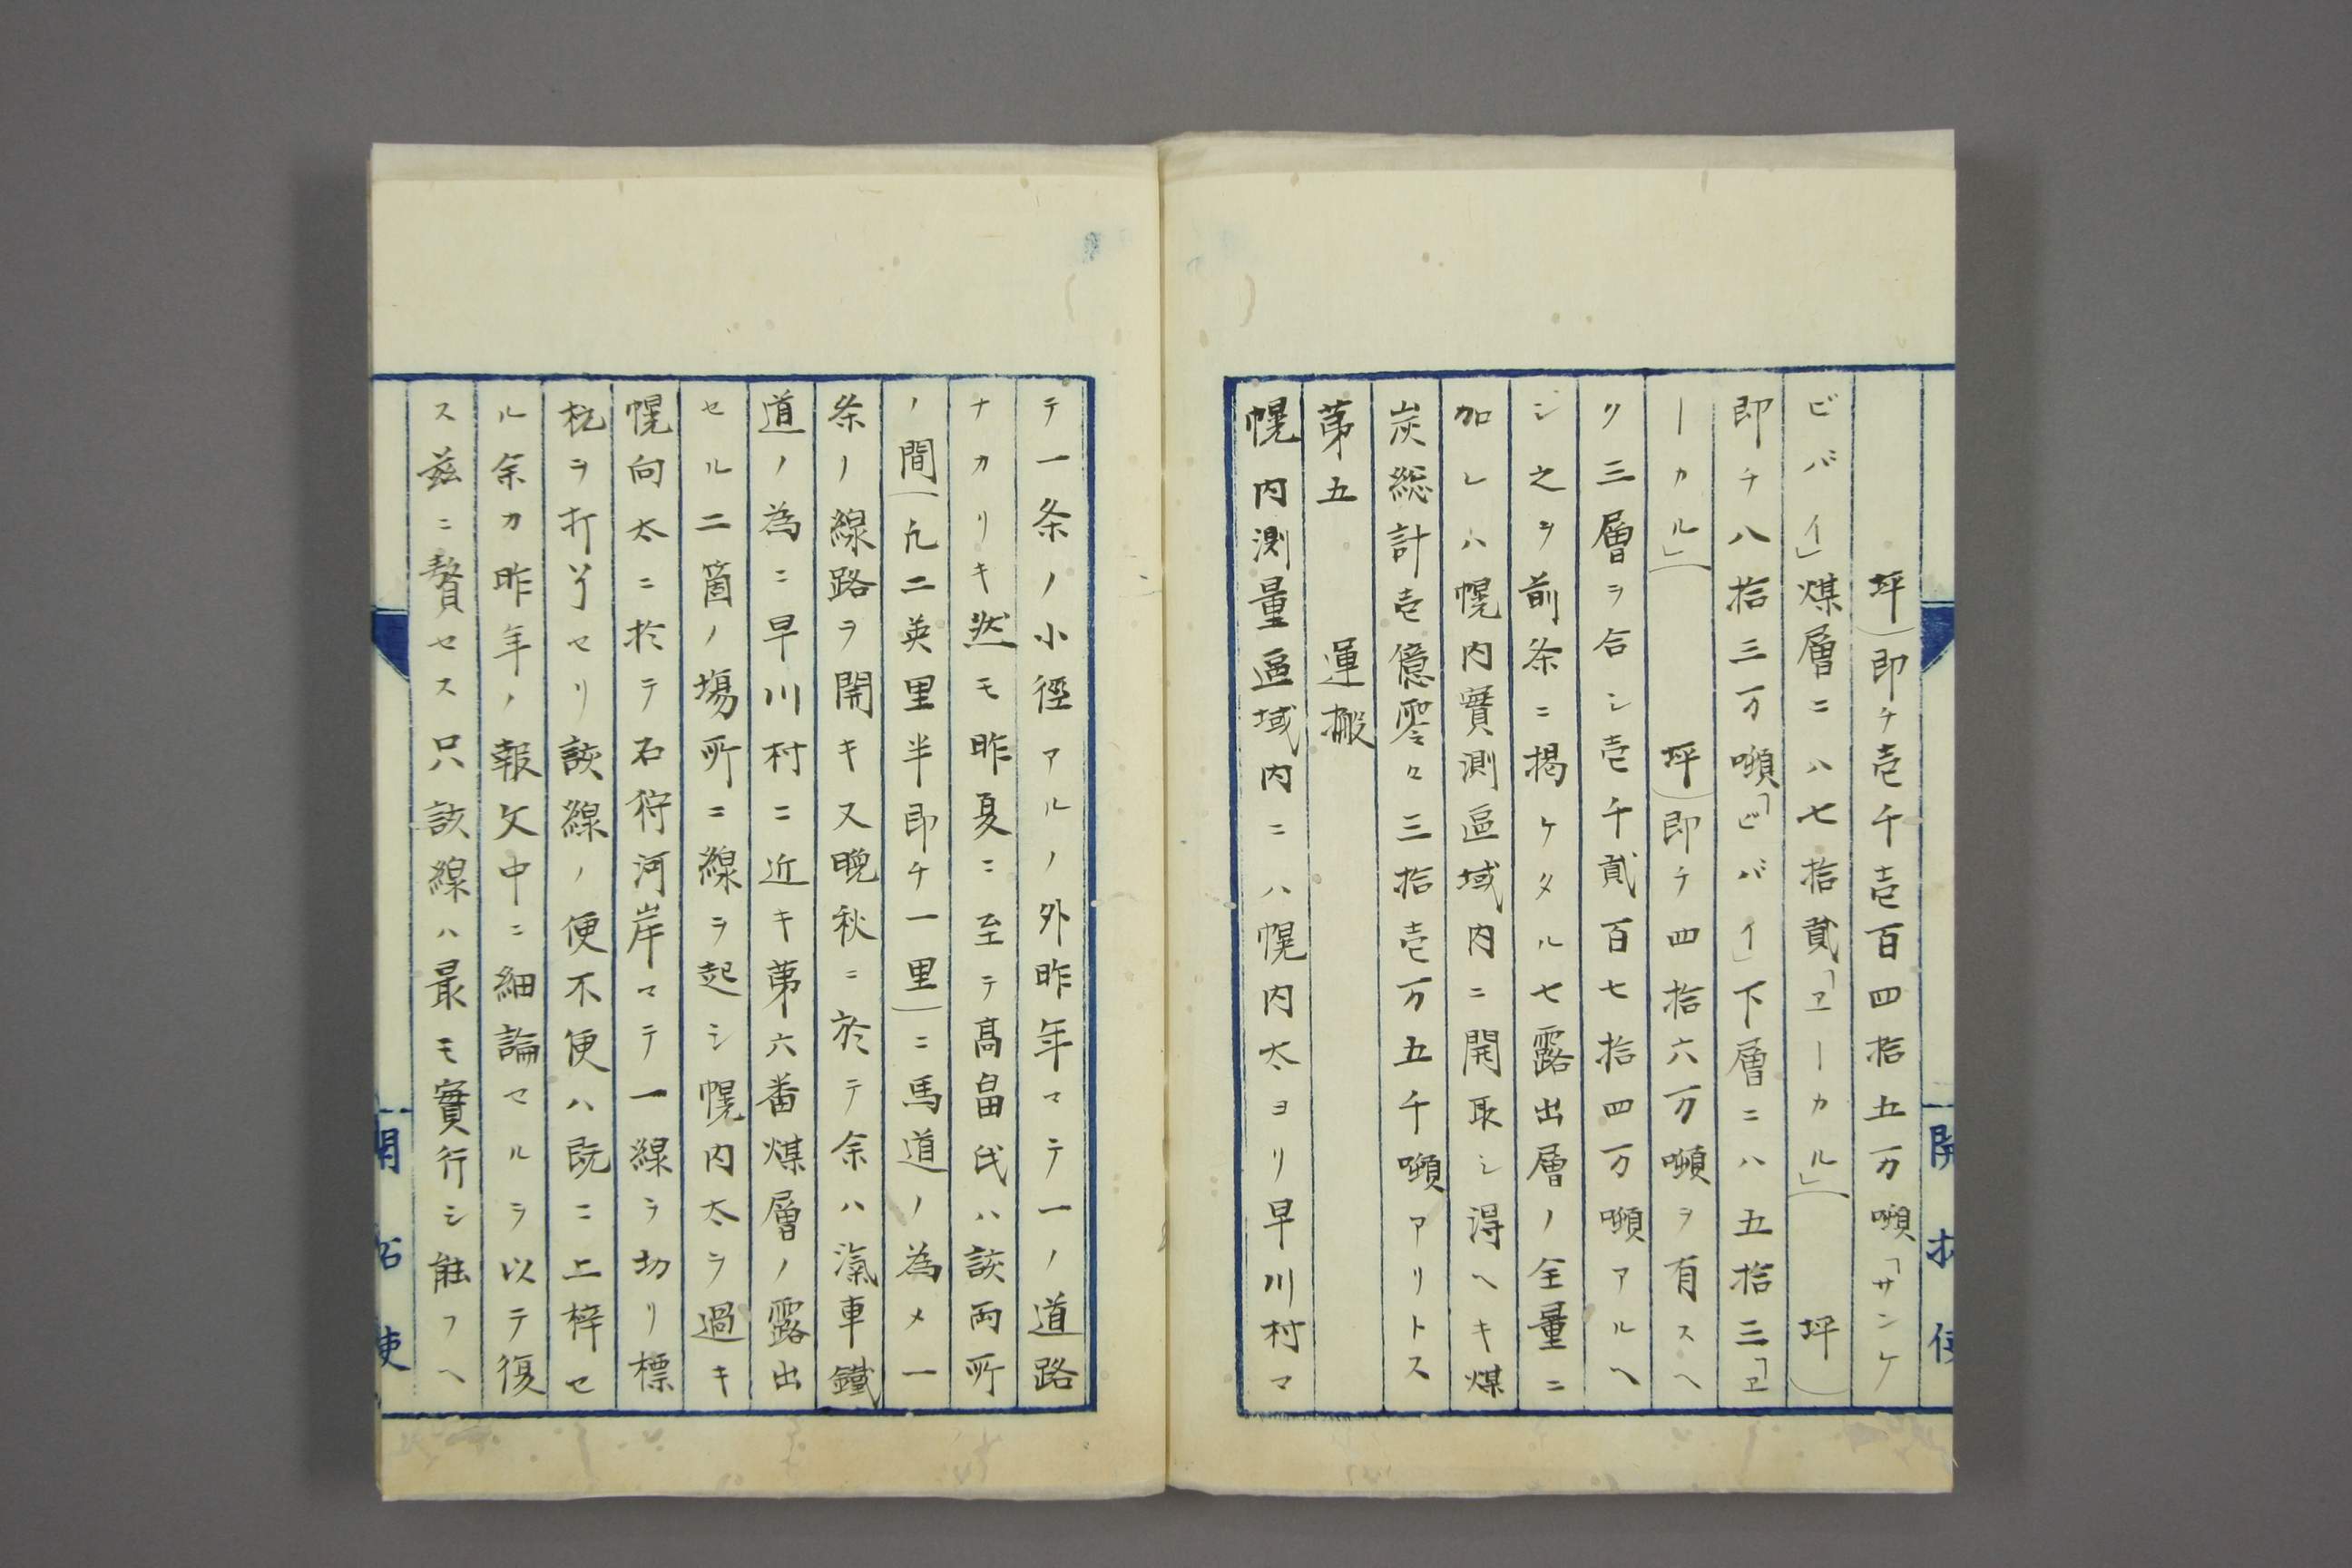 坪(即チ壱千壱百四拾五万噸「サンケ
ビバイ」煤層ニハ七拾貳「ヱーカル」(　　坪)
即チ八拾三万噸「ビバイ」下層ニハ五拾三「ヱ
ーカル」(　　坪)即チ四拾六万噸ヲ有スヘ
ク三層ヲ合シ壱千貳百七拾四万噸アルヘ
シ之ヲ前条ニ掲ケタル七露出層ノ全量ニ
加レハ幌内實測區域内ニ開取シ得ヘキ煤
炭総計壱億零々三拾壱万五千噸アリトス
第五　　運搬
幌内測量區域内ニハ幌内太ヨリ早川村マ
テ一条ノ小徑アルノ外昨年マテ一ノ道路
ナカリキ然モ昨夏ニ至テ髙畠氏ハ該両所
ノ間(凡二英里半即チ一里)ニ馬道ノ為メ一
条ノ線路ヲ開キ又晩秋ニ於テ余ハ滊車鐵
道ノ為ニ早川村ニ近キ第六番煤層ノ露出
セル二箇ノ塲所ニ線ヲ起シ幌内太ヲ過キ
幌向太ニ於テ石狩河岸マテ一線ヲ切リ標
杭ヲ打半セリ該線ノ便不便ハ既ニ上梓セ
ル余カ昨年ノ報文中ニ細論セルヲ以テ復
ス茲ニ贅セス只該線ハ最モ實行シ能フヘ
開拓使